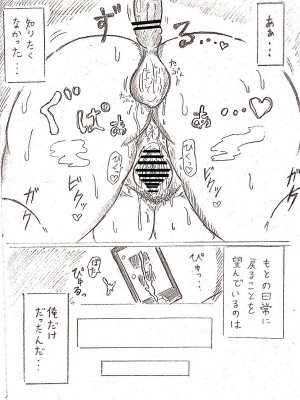 あぁ・・・
ずる・・・♡
知りたく
なかった・・・
たぷん
ぐぱぁぁ・・・♡
ひくっ♡
ひくっ♡
ガク
ガク
もとの日常に
戻ることを
望んでいるのは
ぴゅっ・・
ぴゅるっ
ぼた
俺だけ
だったんだ・・・